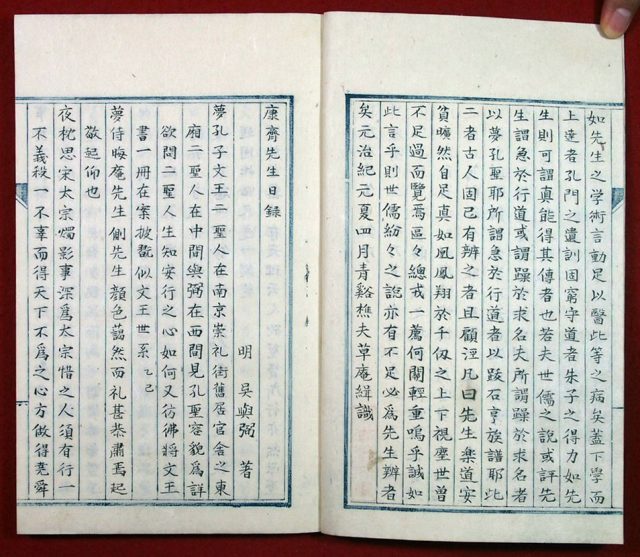 如先生之学術言動足以醫此等之病矣蓋下學而
上達者孔門之遺訓固窮守道者朱子之得力如先
生則可謂真能得其傳者也若夫世儒之説或評先
生謂急於行道或謂躁於求名夫所謂躁於求名者
以夢孔聖耶所謂急於行道者以跋石亨族譜耶此
二者古人固已有辨之者且顧涇凡曰先生樂道安
貧曠然自足真如鳳凰翔於千仭之上下視塵世曽
不足過而覽焉區々總戎一薦何關輕重嗚乎誠如
此言乎則世儒紛々之説亦有不足必為先生辨者
矣元治紀元夏四月青谿樵夫草庵緝識
康齋先生日録
明 吳與弼 著
夢孔子文王二聖人在南京崇礼街舊居官舎之東
廂二聖人在中間與弼在西間見孔聖容貌為詳
欲問二聖人生知安行之心如何又彷彿將文王
書一冊在案披翫似文王世系乙巳
夢侍晦庵先生側先生顔色藹然而礼甚恭肅焉起
敬起仰也
夜枕思宋太宗燭影事深為太宗惜之人須有行一
不義殺一不辜而得天下不為之心方做得堯舜